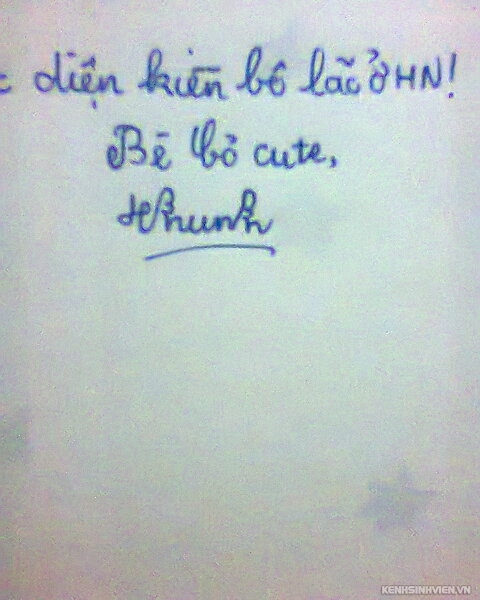 c diện kiến bô lão ở HN!
Bé bỏ cute,
Khunh
KENHSINHVIEN.VN